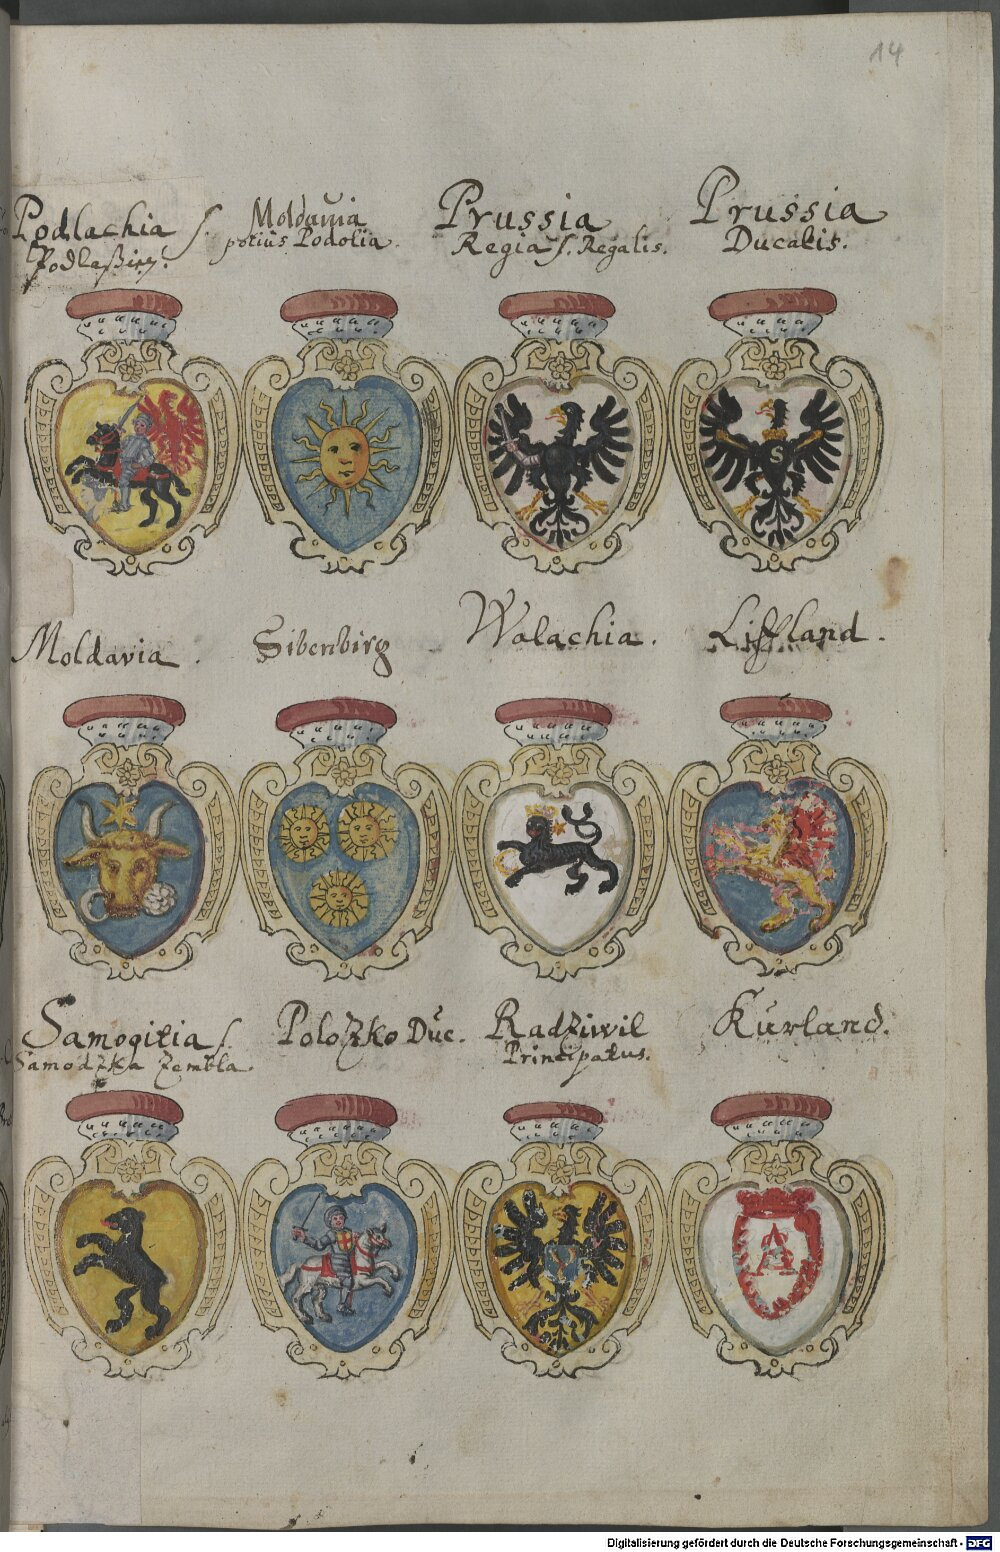 14
Podlachia s.
Moldauia
potius Podolia.
Prussia
Regia s. Regalis.
Prussia
Ducalis.
S
Moldavia.
Sibenbirg
Walachia.
Liffland.
Samogitia s.
Samodzka Zembla.
Polozko Duc.
Radziwil
Principatus.
Kurland.
Digitalisierung gefördert durch die Deutsche Forschungsgemeinschaft - DFG